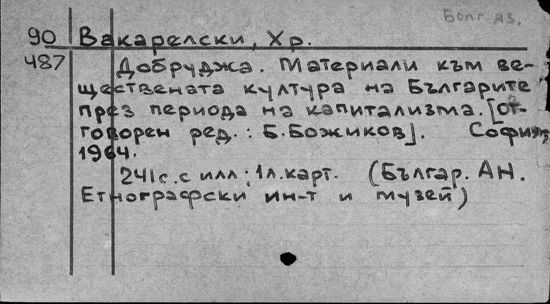 Болг. яз.
90 Вакарелски, Хр.
487 Добруджа. Материали към ве-
ществената култура на Българите
през периода на капитализма. [от-
говорен ред.: Б. Божиков]. София,
1964.
241 с. с илл; 1 л. карт. (Българ. АН.
Етнографски ин-т и музей)